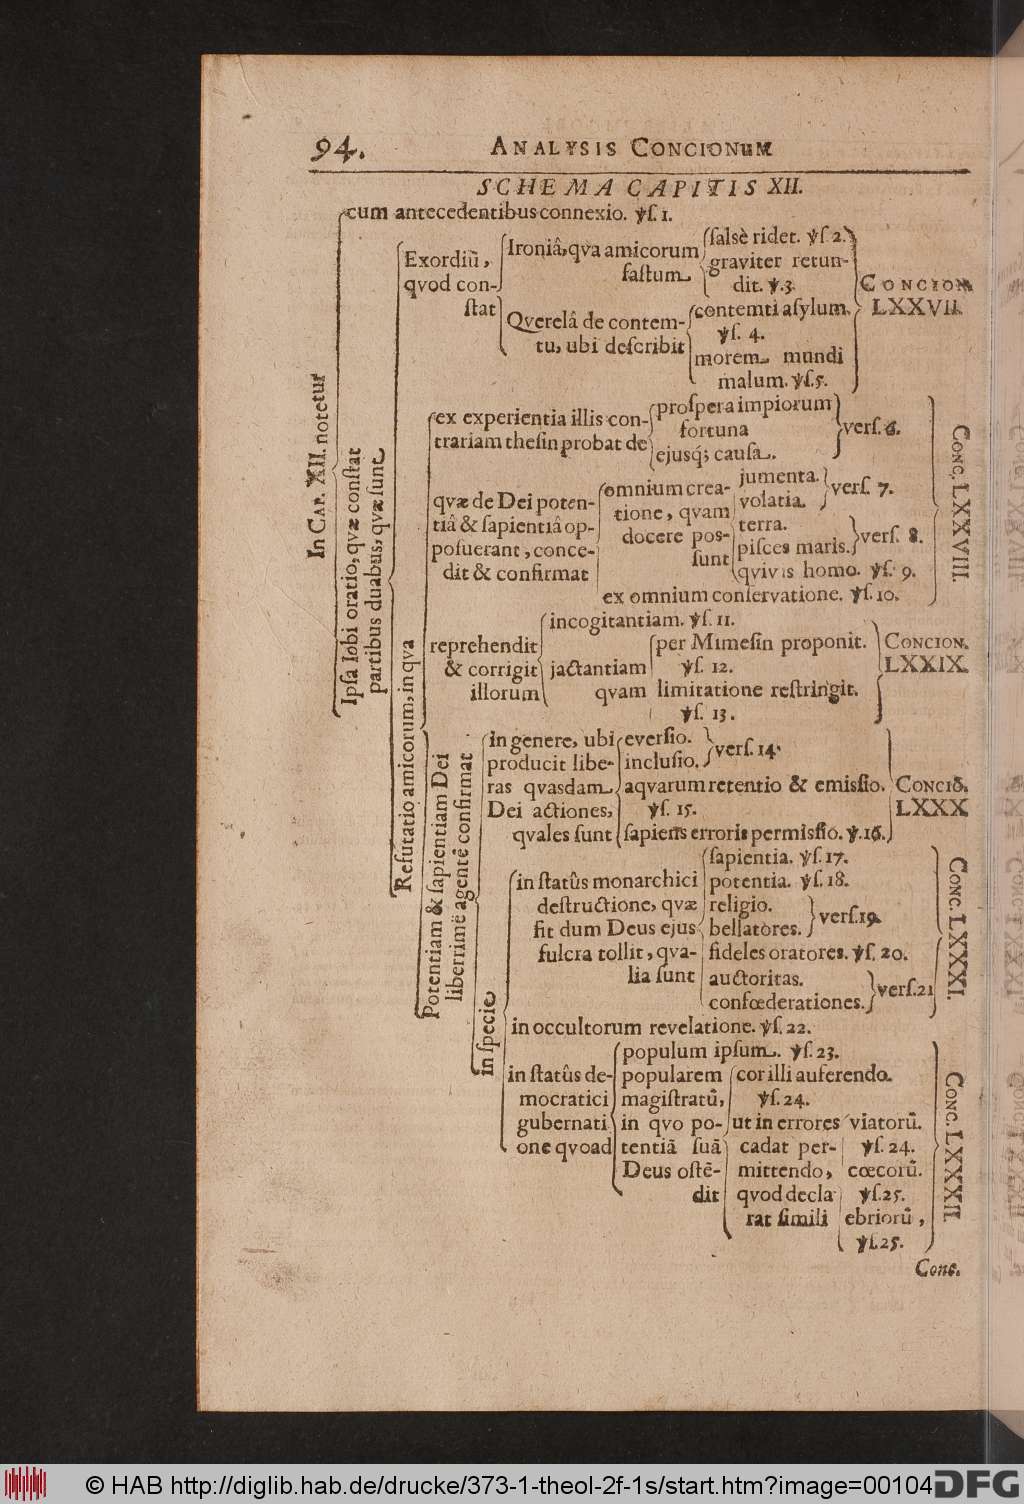 94.
ANALYSIS CONCIONUM
SCHEMA CAPITIS XII.
In CAP. XII. notetur
cum antecedentibus connexio. ℣ſ. 1.
Ipſa Iobi oratio, qvæ conſtat
partibus duabus, qvæ ſunt
Exordiũ,
qvod con-
ſtat
Ironiâ, qva amicorum
faſtum
falsè ridet. ℣ſ 2.
graviter retun-
dit. ℣. 3.
Qverelâ de contem-
tu, ubi deſcribit
contemti aſylum.
℣ſ. 4.
morem mundi
malum. ℣ſ. 5.
CONCION.
LXXVII.
Refutatio amicorum, in qva
ex experientia illis con-
trariam theſin probat de
proſpera impiorum
fortuna
ejusq; cauſa.
verſ. 6.
qvæ de Dei poten-
tiâ & ſapientiâ op-
poſuerant, conce-
dit & confirmat
omnium crea-
tione, qvam
docere poſ-
ſunt
jumenta.
volatia.
verſ. 7.
terra.
piſces maris.
verſ. 8.
qvivis homo. ℣ſ. 9.
ex omnium conſervatione. ℣ſ. 10.
CONC. LXXVIII.
reprehendit
& corrigit
illorum
incogitantiam. ℣ſ. 11.
jactantiam
per Mimeſin proponit.
℣ſ. 12.
qvam limitatione reſtringit.
℣ſ. 13.
CONCION.
LXXIX.
Potentiam & ſapientiam Dei
liberrimẽ agentẽ confirmat
in genere, ubi
producit libe-
ras qvasdam
Dei actiones,
qvales ſunt
everſio.
incluſio.
verſ. 14.
aqvarum retentio & emiſſio.
℣ſ. 15.
ſapiens erroris permiſſio. ℣. 16.
CONCIO.
LXXX
in ſpecie
in ſtatûs monarchici
deſtructione, qvæ
fit dum Deus ejus
fulcra tollit, qva-
lia ſunt
ſapientia. ℣ſ. 17.
potentia. ℣ſ. 18.
religio.
bellatores.
verſ. 19.
fideles oratores. ℣ſ. 20.
auctoritas.
confœderationes.
verſ. 21
in occultorum revelatione. ℣ſ. 22.
CONC. LXXXI.
in ſtatûs de-
mocratici
gubernati
one qvoad
populum ipſum. ℣ſ. 23.
popularem
magiſtratũ,
in qvo po-
tentiã ſuã
Deus oſtẽ-
dit
cor illi auferendo.
℣ſ. 24.
ut in errores
cadat per-
mittendo,
qvod decla
rat ſimili
viatorũ.
℣ſ. 24.
cœcorũ.
℣ſ. 25.
ebriorũ,
℣ſ. 25.
CONC. LXXXII.
Conc.
© HAB http://diglib.hab.de/drucke/373-1-theol-2f-1s/start.htm?image=00104
DFG